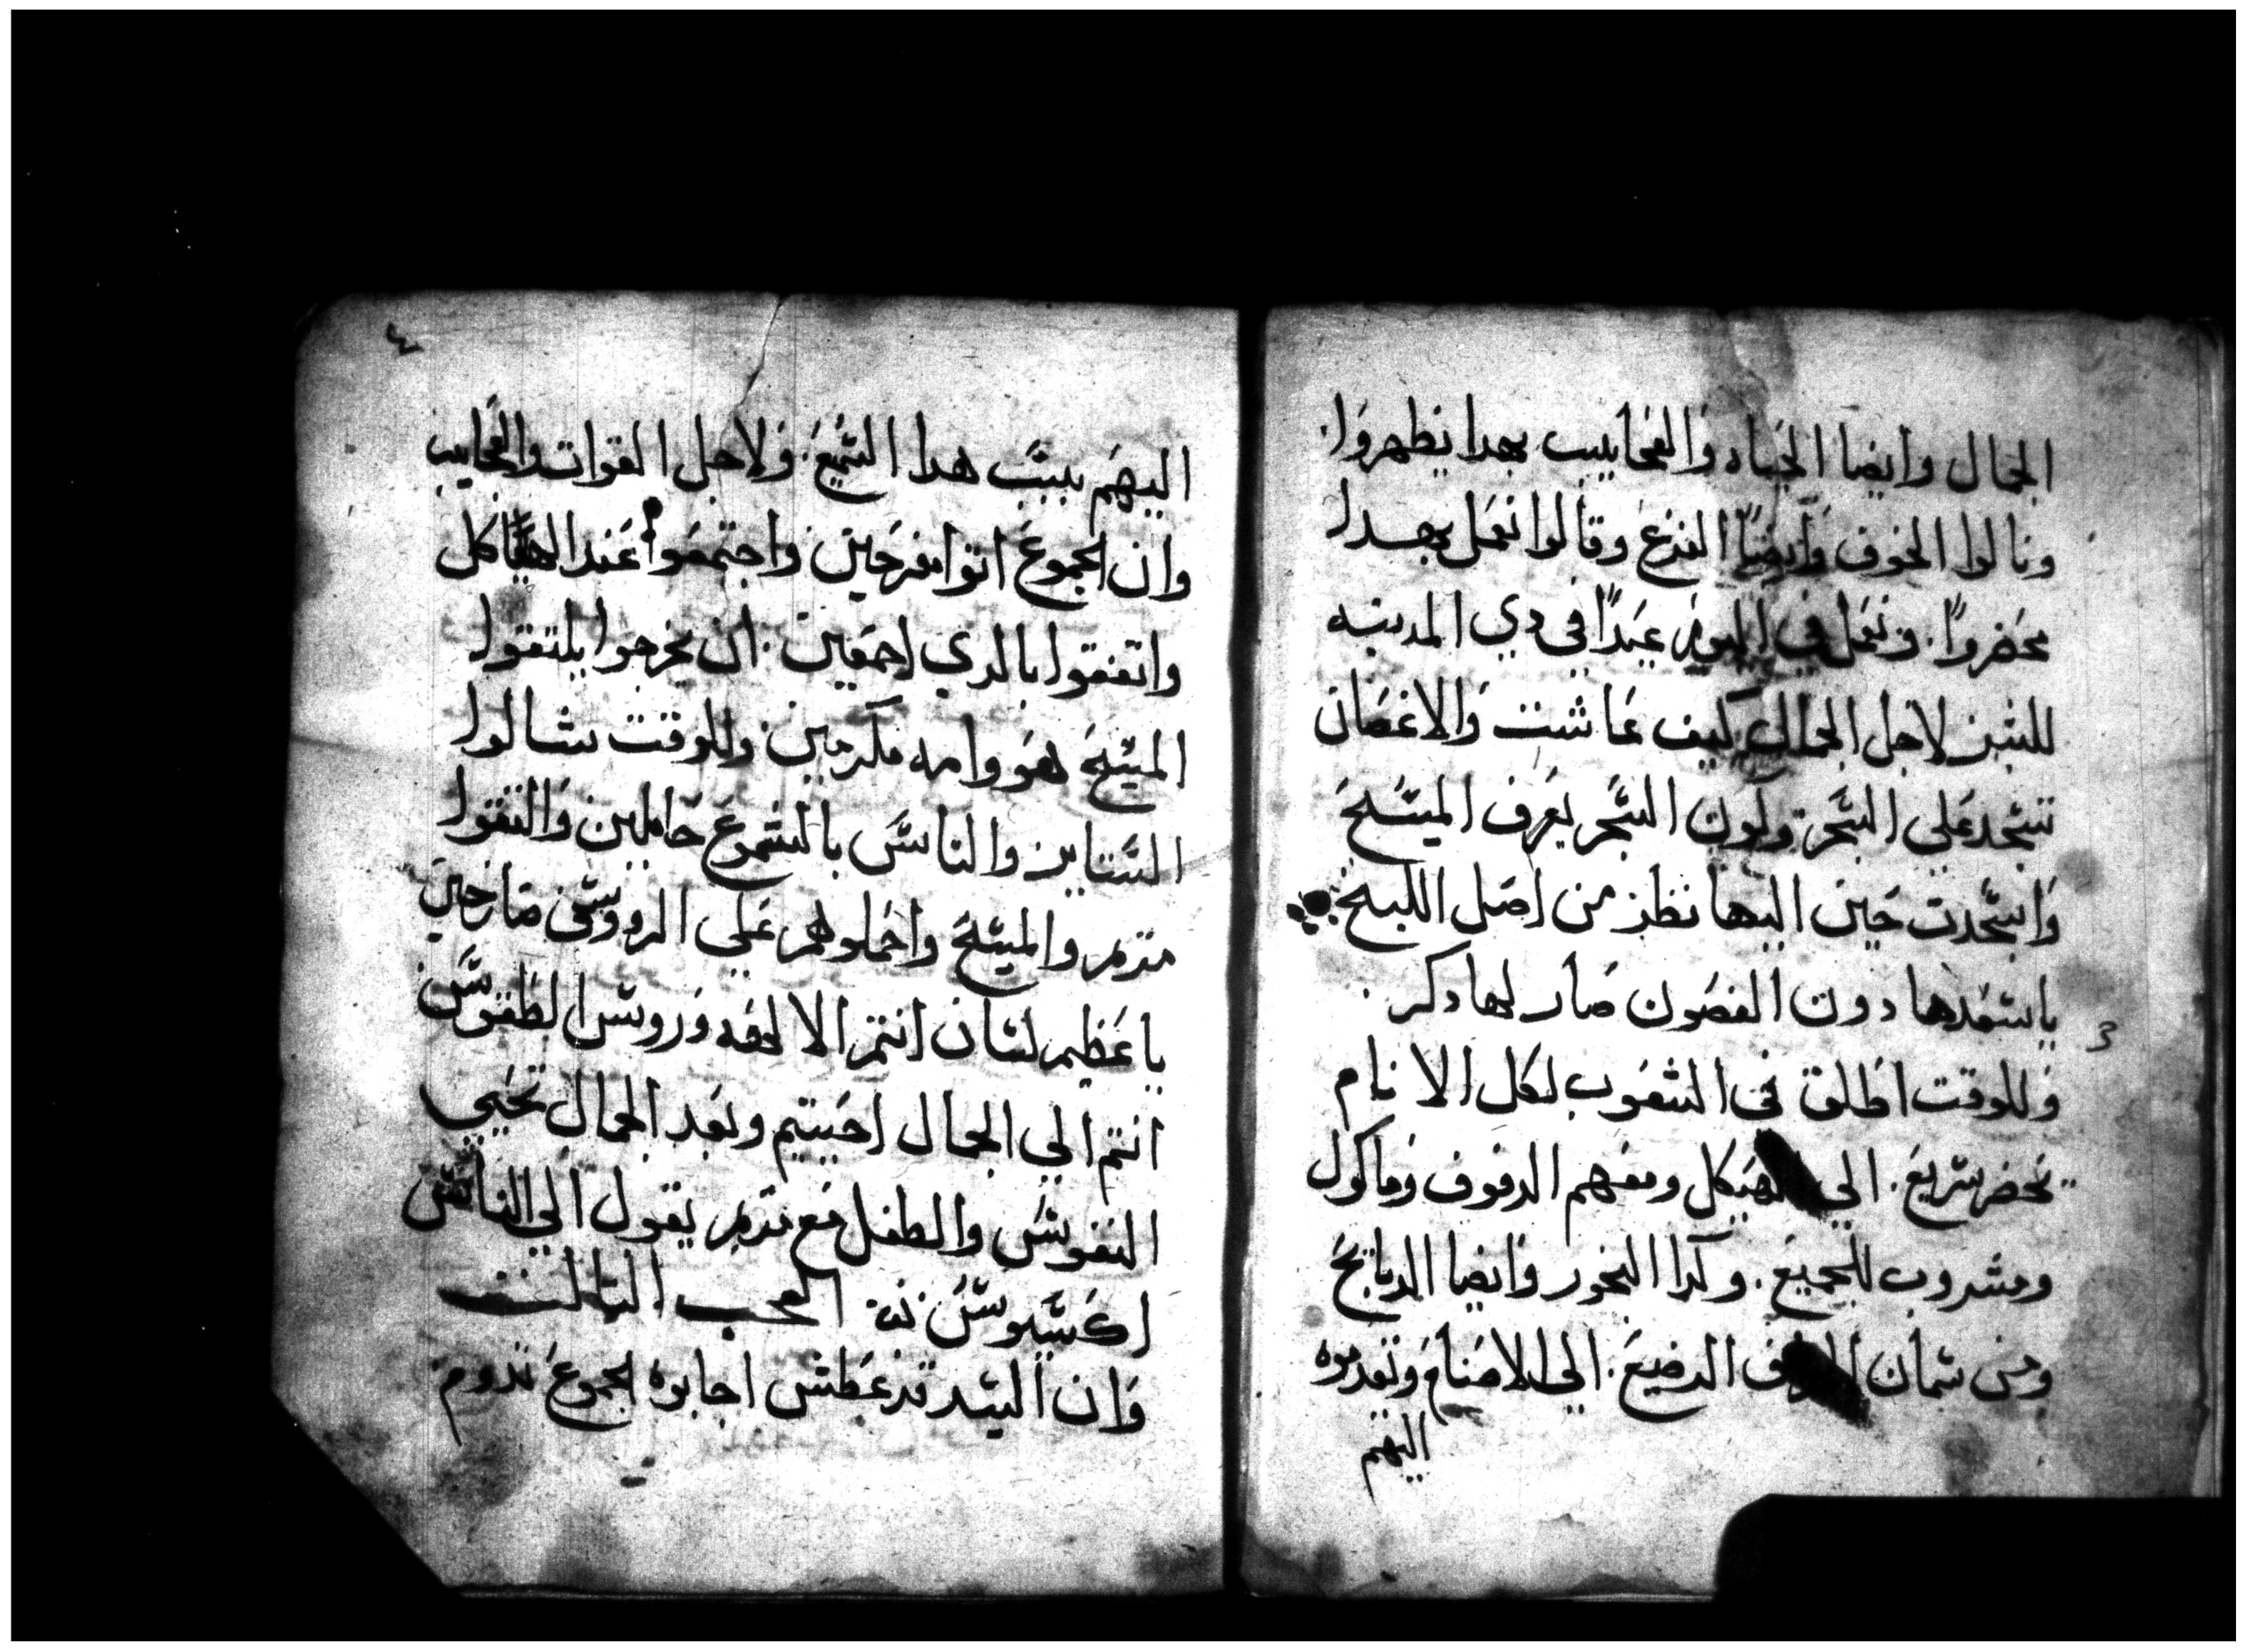 الجمال وايضا الحياه والعجايب بهدا يظهروا.
ونالوا الخوف وايضاً الفزع وقالوا نعمل بهدا
محضروا. ونعمل في اليوم عيداً في دي المدينه
للبنين لاجل الجمال كيف عاشت والاغصان
تسجد علي الشجر ولون الشجر يعرف المسيح
واسجدت حين اليها نظر من اصل اللبخ
ياسعدها دون الغصون صار لها دكر.
وللوقت اطلق في الشعوب لكل الانام
تحضر سريع. الي الهيكل ومعهم الدفوف وماكول
ومشروب للجميع. وكدا البخور وايضا الدبايح
ومن سمان الرضيع. الي الاصنام وتقدموه
اليهم
3
4
اليهم بسبب هدا الشميع. ولاجل القوات والعجايب
وان الجموع اتوا مفرحين واجتمعوا عند الهياكل
واتفقوا بالدي اجمعين. ان يخرجوا يلتقوا
المسيح هو وامه مكرمين وللوقت شالوا
الستاير والناس بالشموع حاملين والتقوا
مريم والمسيح واحملوهم علي الرووس صارخين
يا عظيم لسان انتم الالهه وروس الطقوس
انتم الي الجمال احييتم وبعد الجمال تحيي
النفوس والطفل مع مريم يقول الي الناس
اكسيوس نه العجب التالت
وان السيد قد عطش اجابوه الجموع تدوم